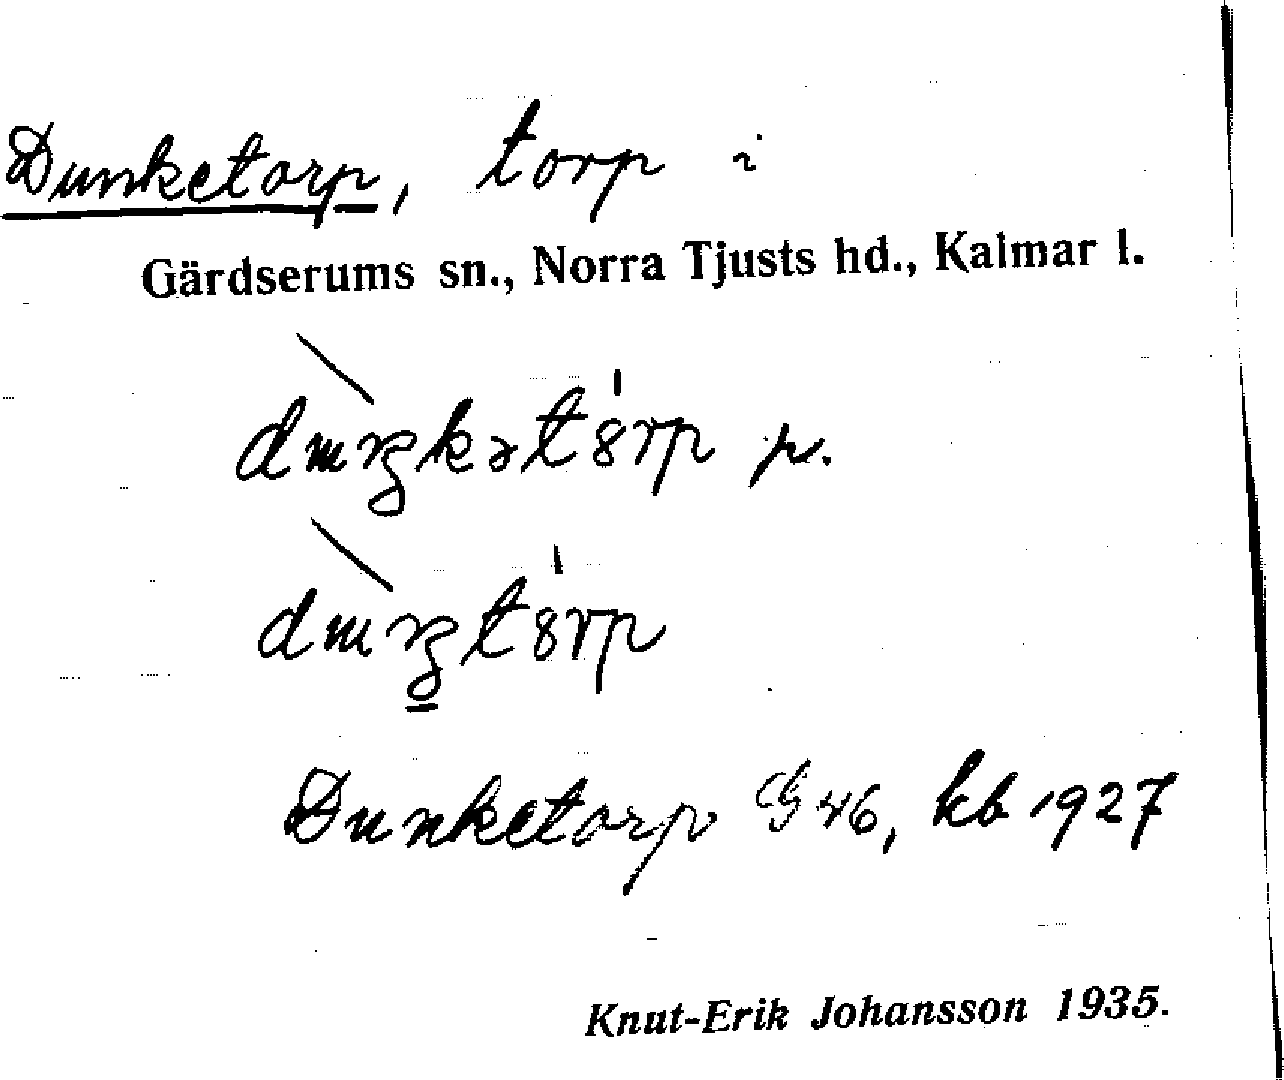 Dunketorp, torp i
Gärdserums sn., Norra Tjusts hd., Kalmar l.
dɯ̀ŋkət8̍rp p.
dɯ̀ŋt8̍rp
Dunketorp G46, kb 1927
Knut-Erik Johansson 1935.